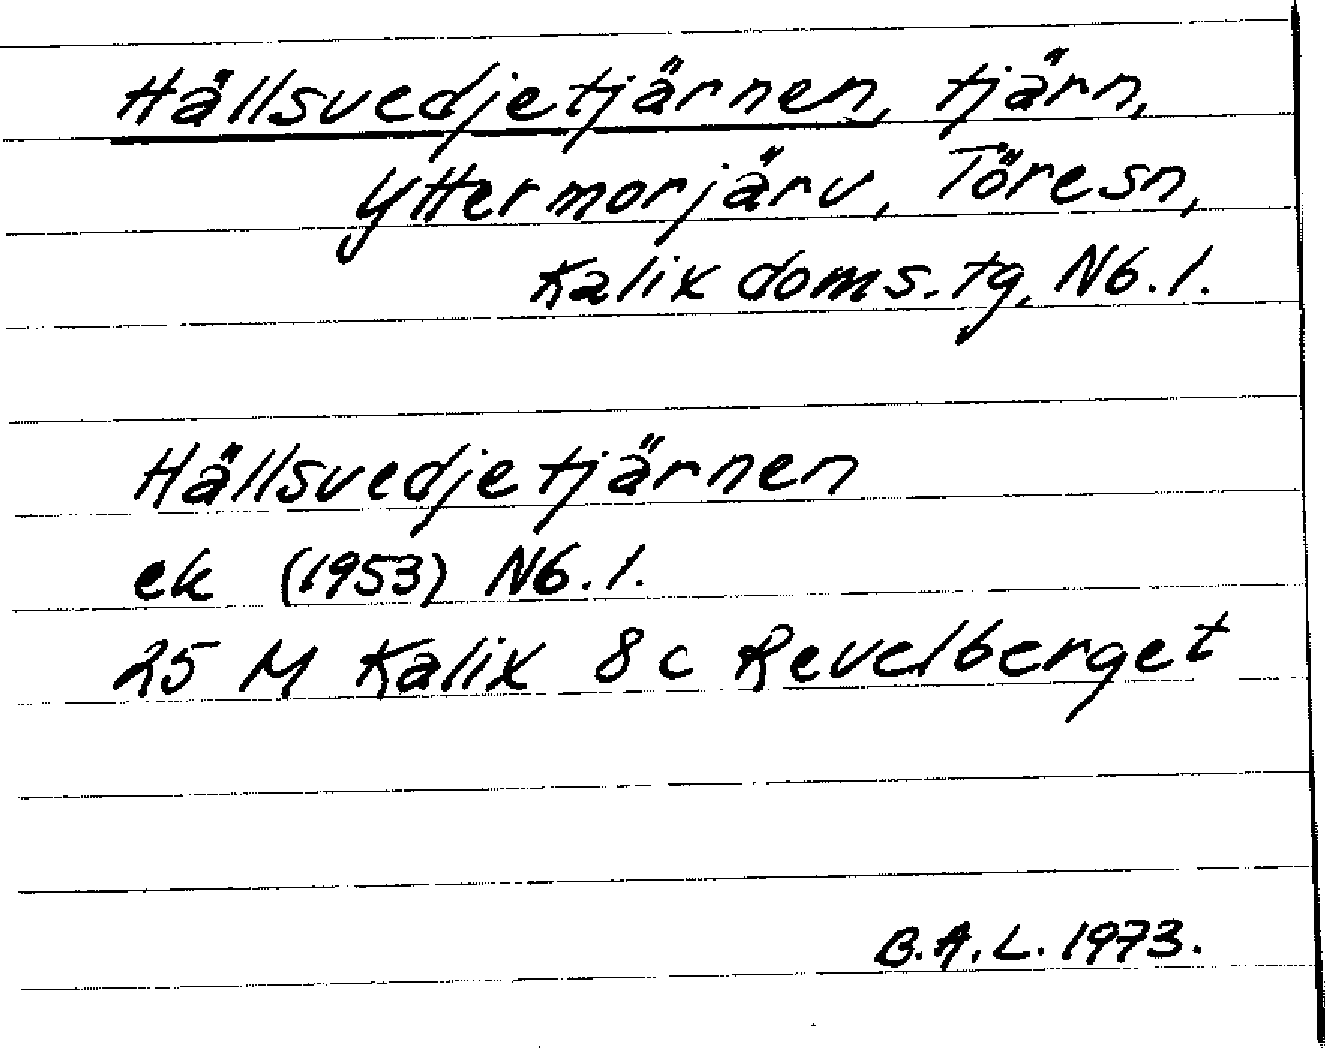 Hällsvedjetjärnen, tjärn,
Yttermorjärv, Töre sn,
Kalix doms. tg, Nb. l.
Hällsvedjetjärnen
ek (1953) Nb. l.
25 M Kalix 8c Revelberget
B.A.L. 1973.